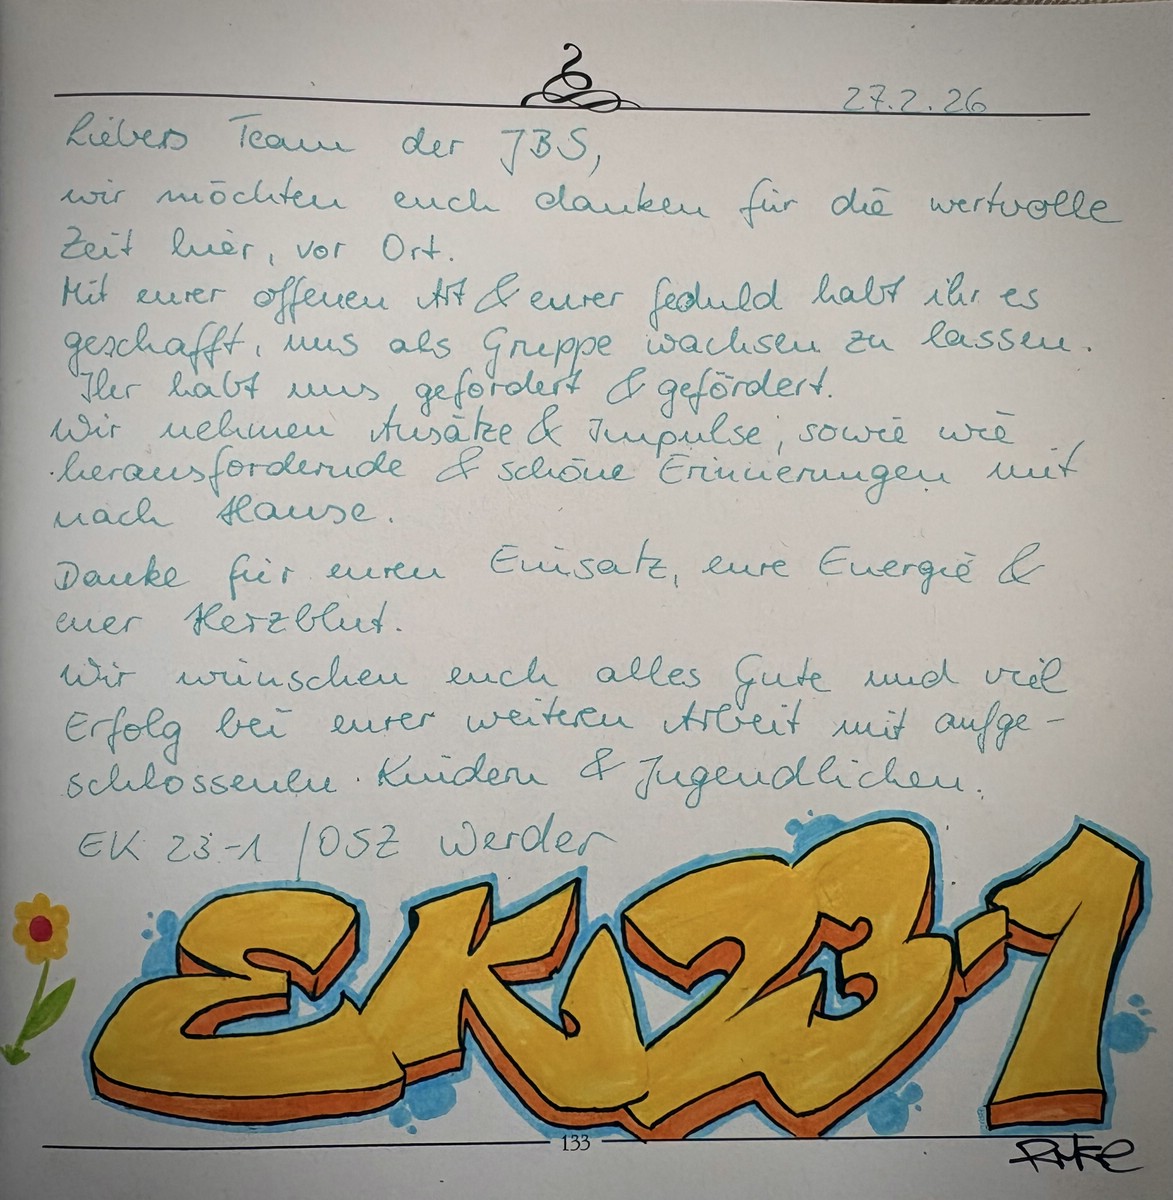 27.2.26
Liebes Team der JBS,
wir möchten euch danken für die wertvolle
Zeit hier, vor Ort.
Mit eurer offenen Art & eurer Geduld habt ihr es
geschafft, uns als Gruppe wachsen zu lassen.
Ihr habt uns gefordert & gefördert.
Wir nehmen Ansätze & Impulse, sowie wie
herausfordernde & schöne Erinnerungen mit
nach Hause.
Danke für euren Einsatz, eure Energie &
euer Herzblut.
Wir wünschen euch alles Gute und viel
Erfolg bei eurer weiteren Arbeit mit aufge-
schlossenen Kindern & Jugendlichen.
EK 23-1 / OSZ Werder
EK23-1
133